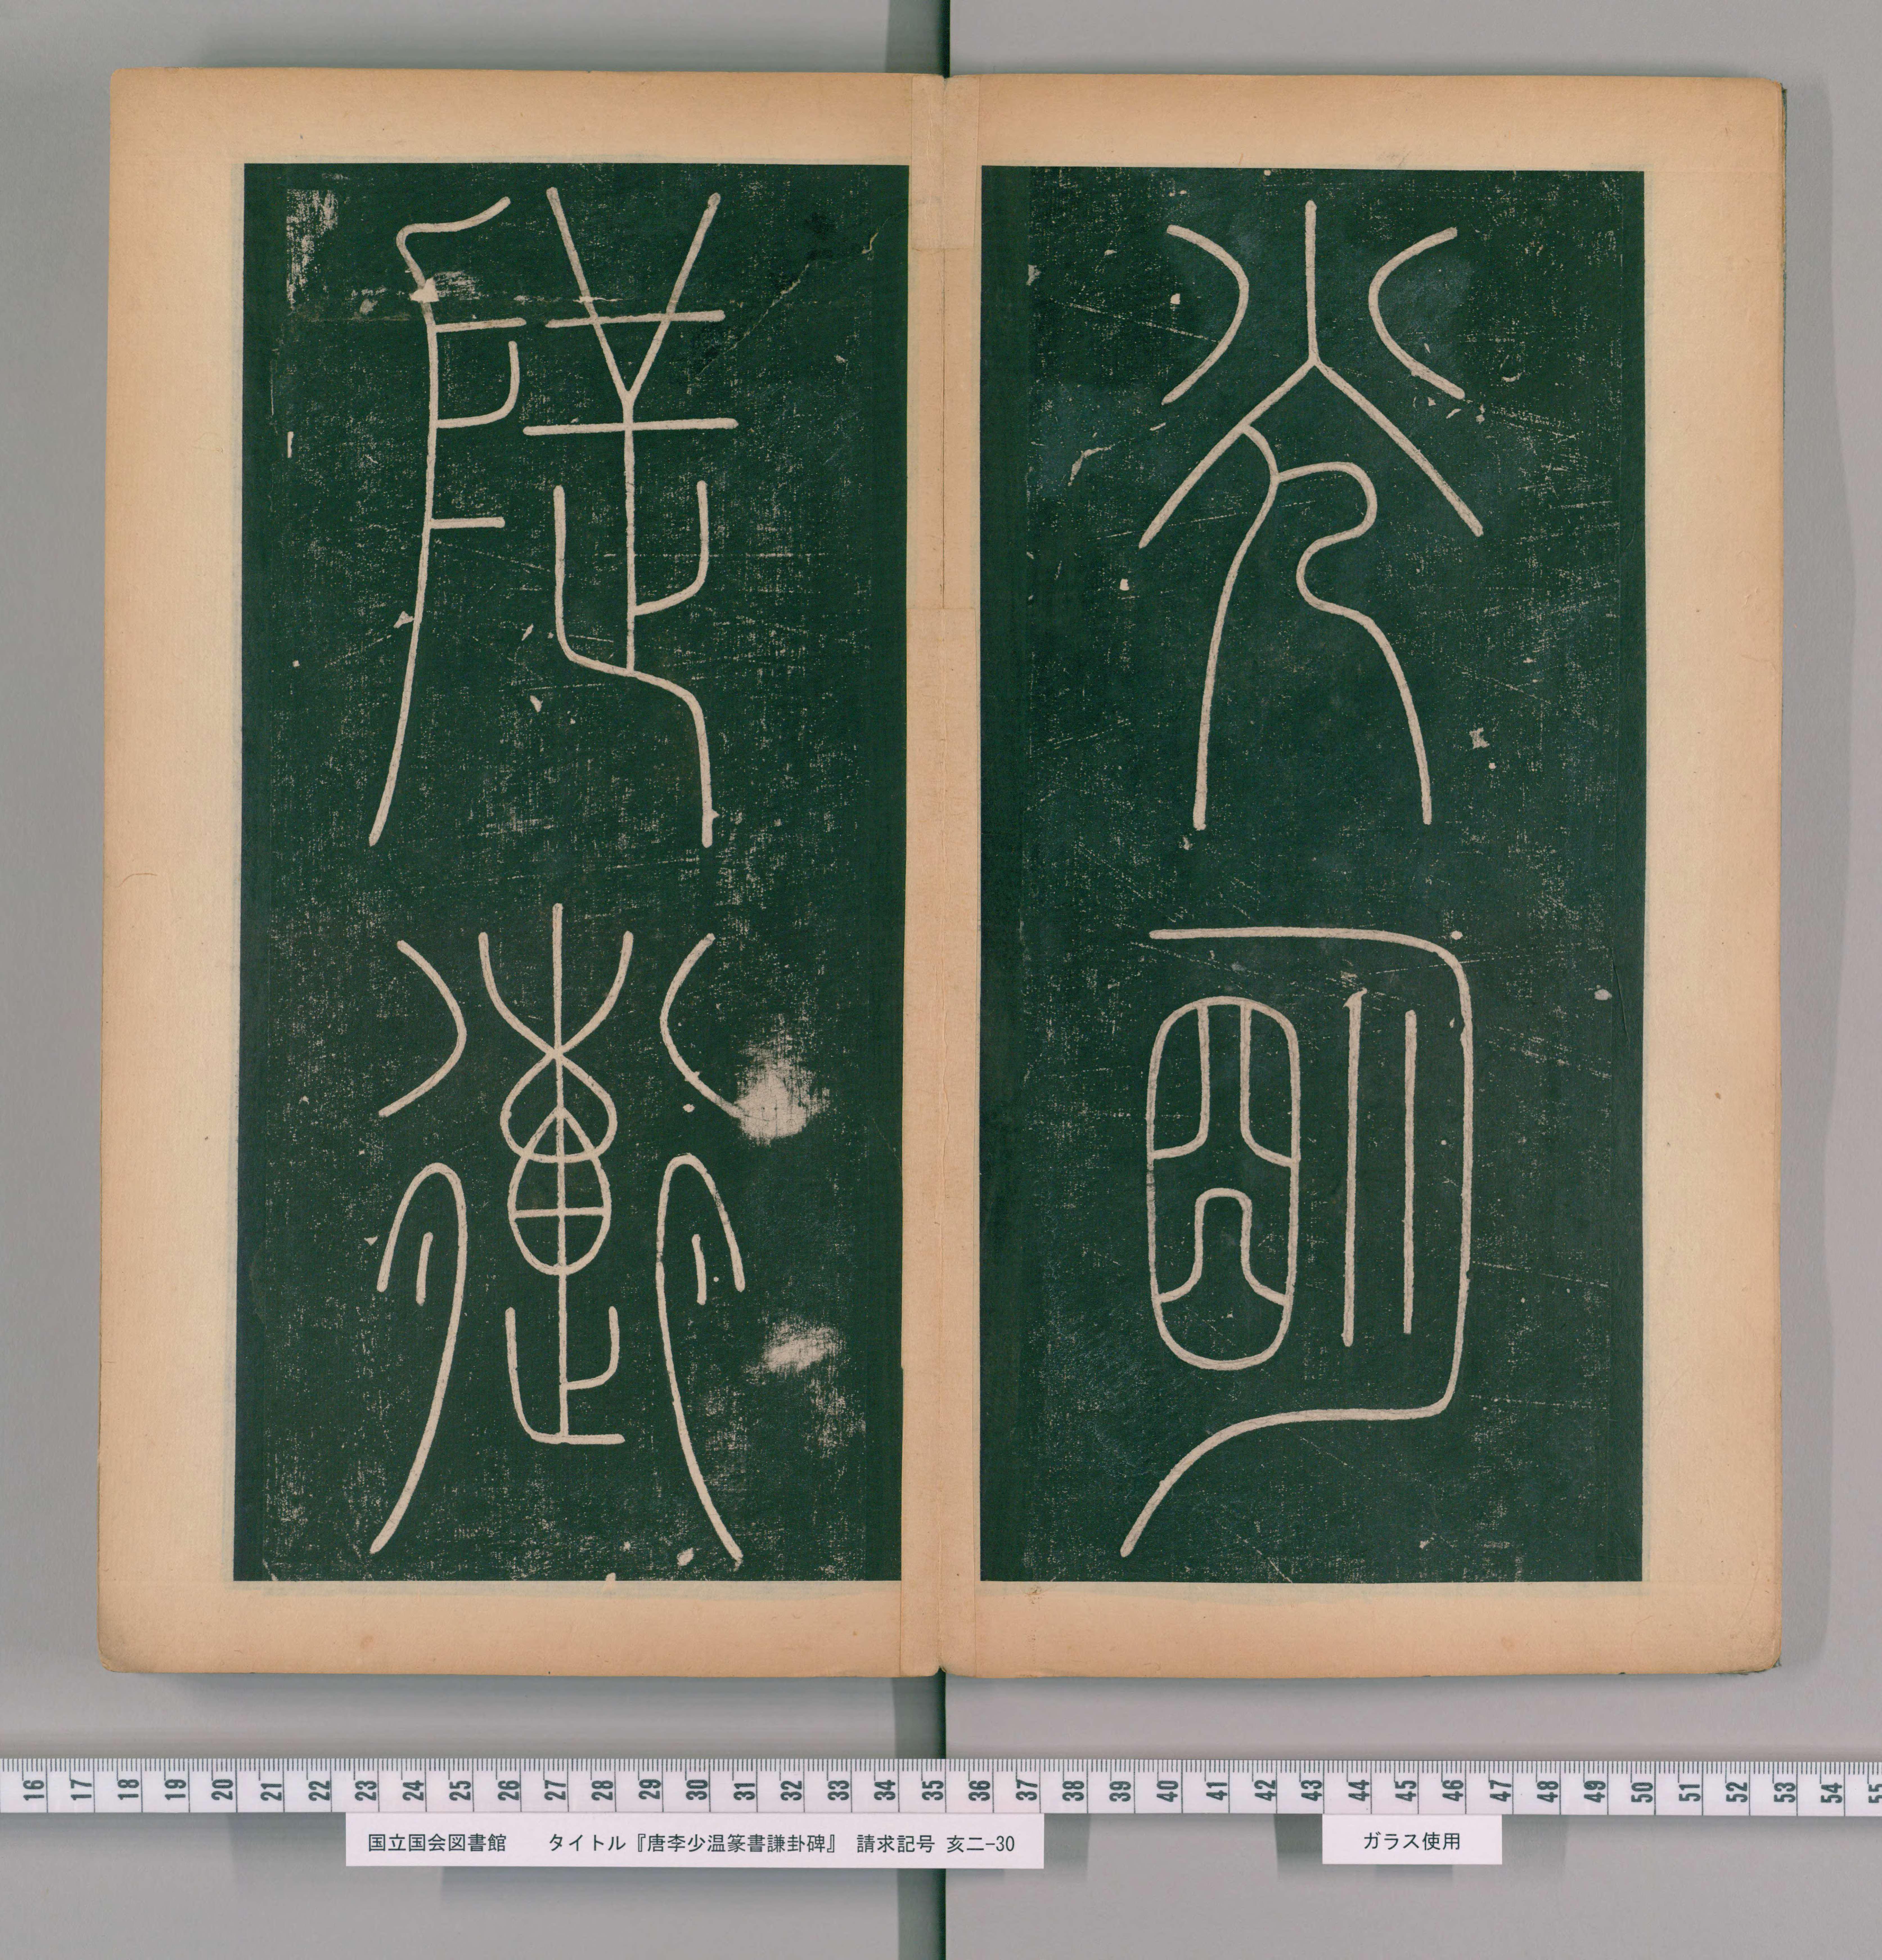 光明
地道
16 17 18 19 20 21 22 23 24 25 26 27 28 29 30 31 32 33 34 35 36 37 38 39 40 41 42 43 44 45 46 47 48 49 50 51 52 53 54 55
国立国会図書館 タイトル『唐李少温篆書謙卦碑』 請求記号 亥二-30
ガラス使用